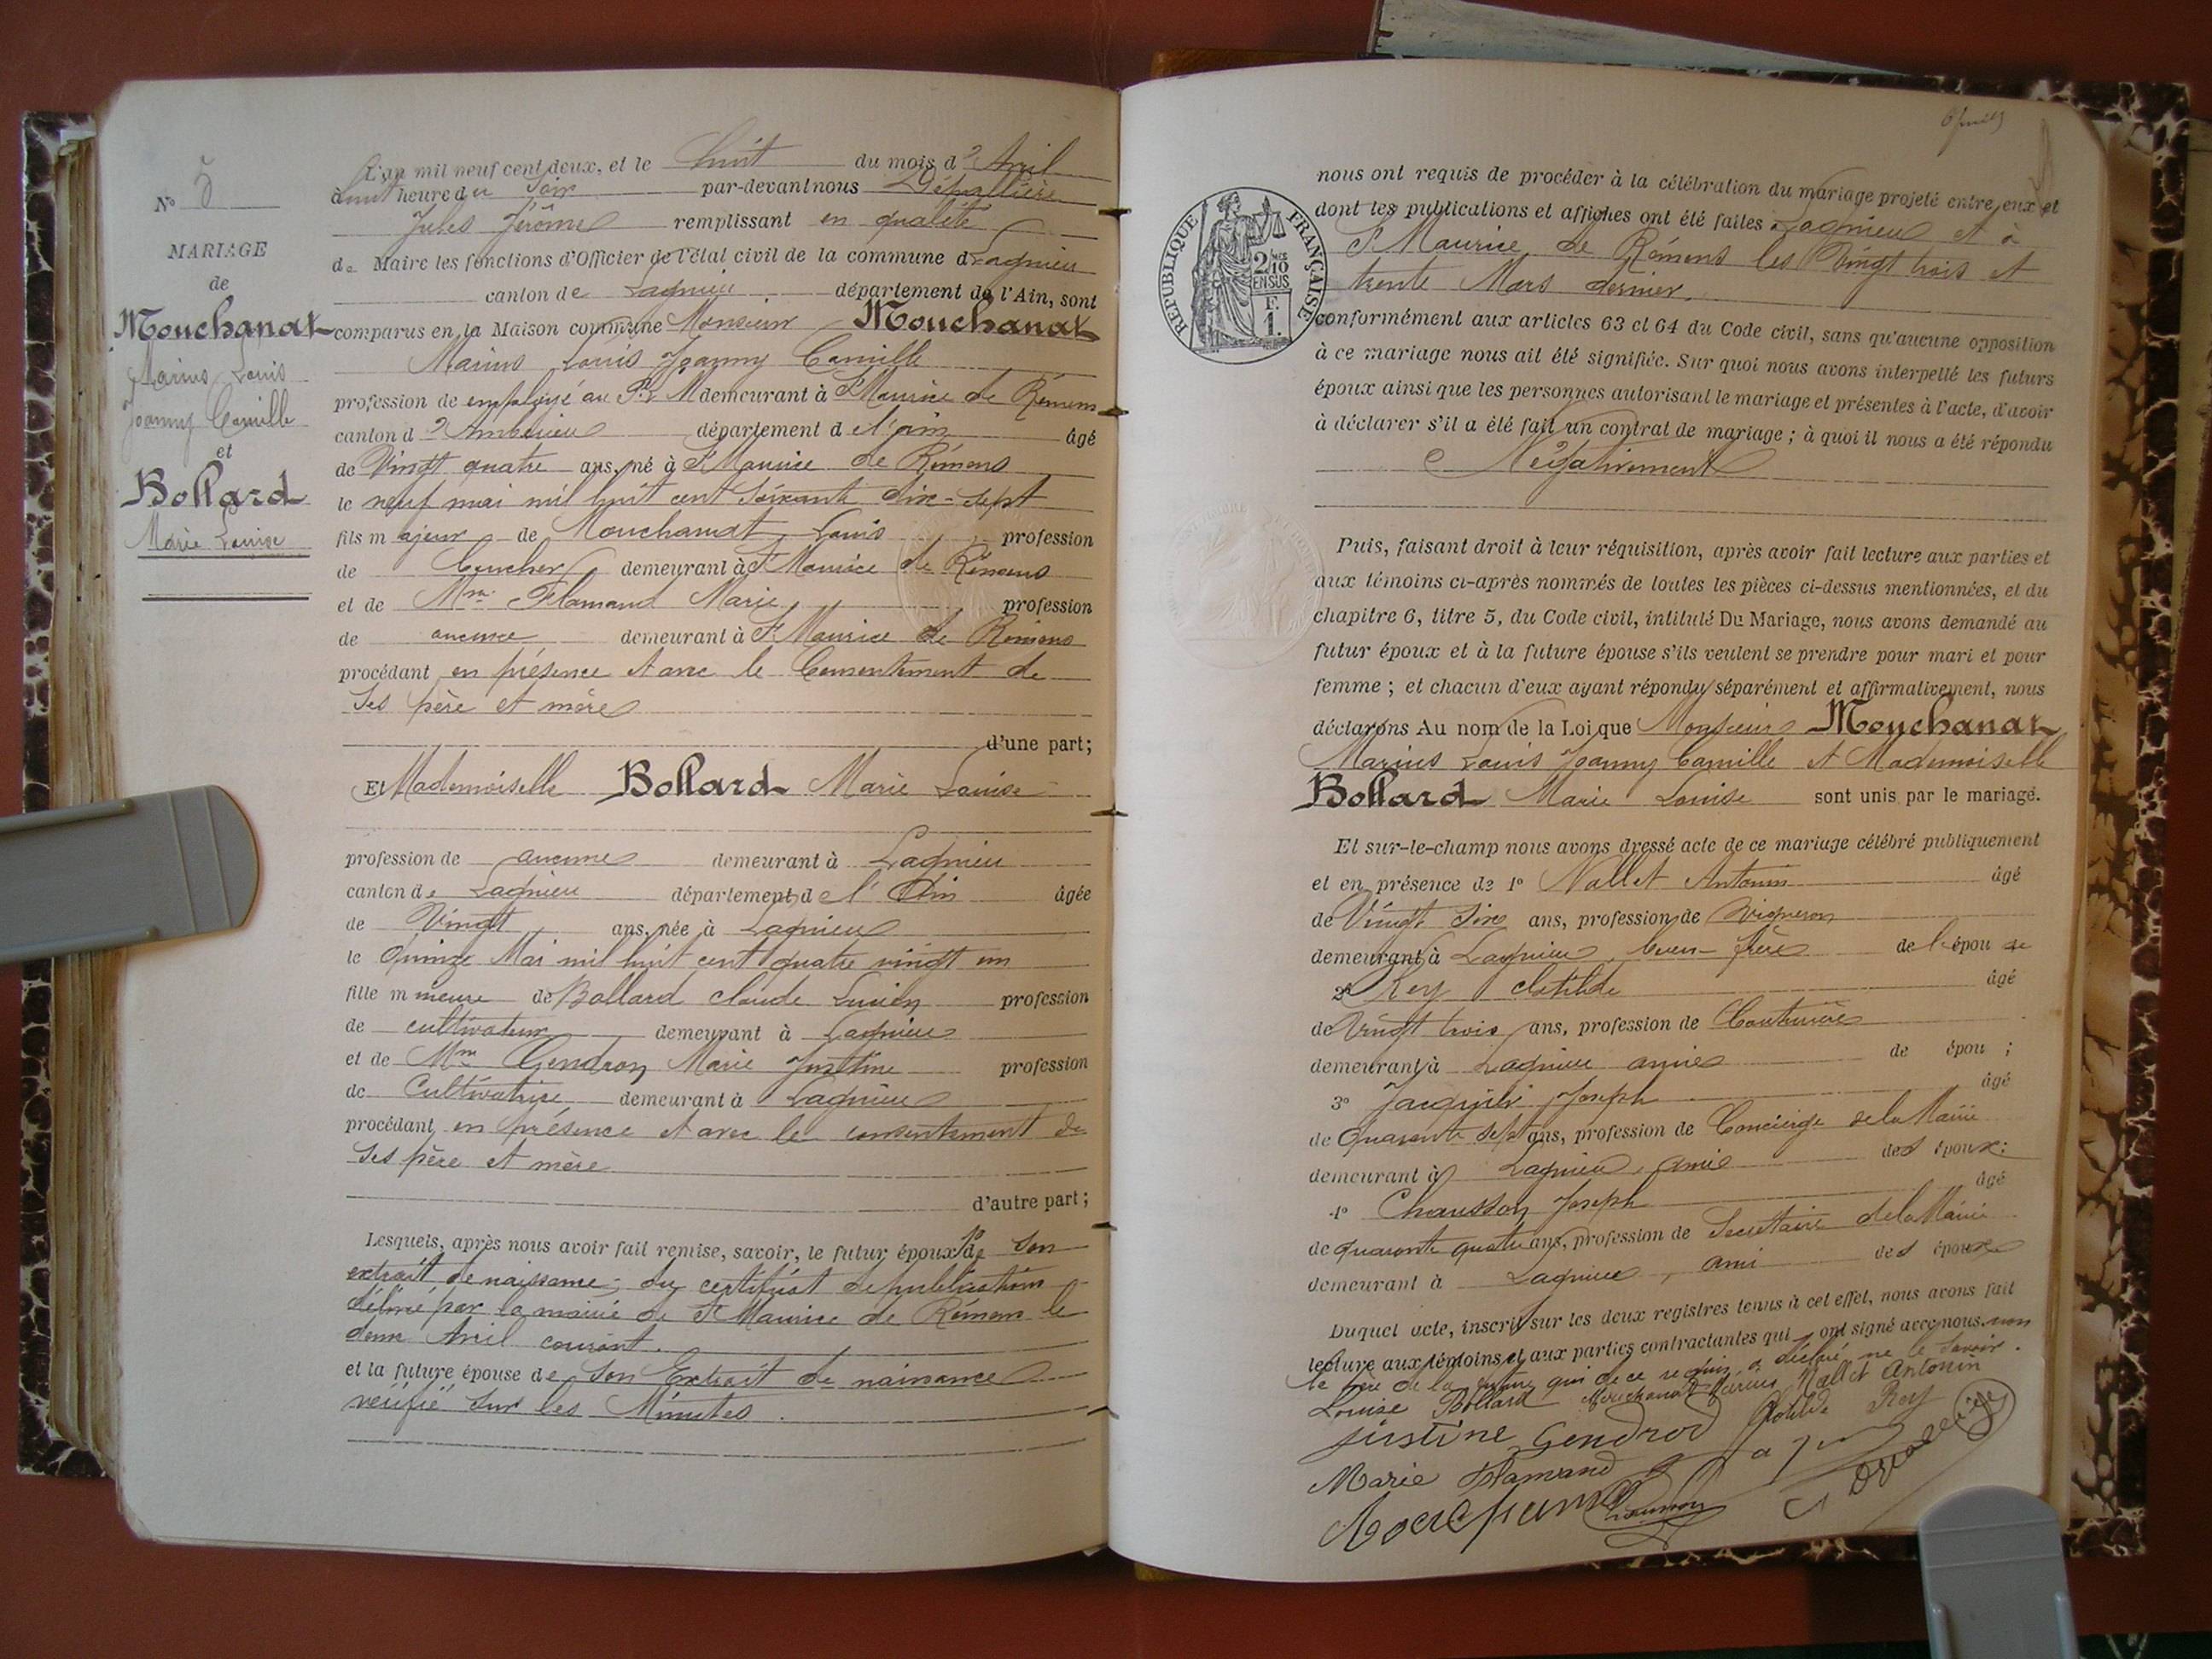 N° 5
MARIAGE
de
Mouchanat
Marius Louis
Joanny Camille
et
Bollard
Marie Louise
L'an mil neuf cent deux, et le huit du mois d'Avril
à huit heure du soir par-devant nous
Jules Jérôme remplissant en qualité
de Maire les fonctions d'Officier de l'état civil de la commune d Lagnieu
canton de Lagnieu département de l'Ain, sont
comparus en la Maison commune Monsieur Mouchanat
Marius Louis Joanny Camille
profession de employé au P. L. M demeurant à St Maurice de Rémens
canton d'Ambérieu département de l'Ain âgé
de Vingt quatre ans, né à St Maurice de Rémens
le neuf mai mil huit cent soixante dix-sept
fils majeur de Mouchanat Louis profession
de demeurant à St Maurice de Rémens
et de Mme Flamand Marie profession
de aucune demeurant à St Maurice de Rémens
procédant en présence et avec le Consentement de
ses père et mère
d'une part;
Et Mademoiselle Bollard Marie Louise
profession de aucune demeurant à Lagnieu
canton de Lagnieu département de l'Ain âgée
de Vingt ans, née à Lagnieu
le Quinze Mai mil huit cent quatre vingt un
fille mineure de Bollard claude Lucien profession
de cultivateur demeurant à Lagnieu
et de Mme Gendron Marie Justine profession
de Cultivatrice demeurant à Lagnieu
procédant en présence et avec le consentement de
ses père et mère
d'autre part;
Lesquels, après nous avoir fait remise, savoir, le futur époux 1° de son
extrait de naissance; du certificat de publication
délivré par la mairie de St Maurice de Rémens le
deux Avril courant.
et la future épouse de son Extrait de naissance
vérifié sur les Minutes.
nous ont requis de procéder à la célébration du mariage projeté entre eux et
dont les publications et affiches ont été faites à Lagnieu et à
St Maurice de Rémens les Vingt trois et
trente Mars dernier,
RÉPUBLIQUE FRANÇAISE
2/10 EN SUS
F.
1.
conformément aux articles 63 et 64 du Code civil, sans qu'aucune opposition
à ce mariage nous ait été signifiée. Sur quoi nous avons interpellé les futurs
époux ainsi que les personnes autorisant le mariage et présentes à l'acte, d'avoir
à déclarer s'il a été fait un contrat de mariage; à quoi il nous a été répondu
Négativement
Puis, faisant droit à leur réquisition, après avoir fait lecture aux parties et
aux témoins ci-après nommés de toutes les pièces ci-dessus mentionnées, et du
chapitre 6, titre 5, du Code civil, intitulé Du Mariage, nous avons demandé au
futur époux et à la future épouse s'ils veulent se prendre pour mari et pour
femme; et chacun d'eux ayant répondu séparément et affirmativement, nous
déclarons Au nom de la Loi que Monsieur Mouchanat
Marius Louis Joanny Camille et Mademoiselle
Bollard Marie Louise sont unis par le mariage.
Et sur-le-champ nous avons dressé acte de ce mariage célébré publiquement
et en présence de 1° Nallet Antonin âgé
de Vingt six ans, profession de Vigneron
demeurant à Lagnieu, beau-frère de l'épouse
2° Rey Clotilde âgé
de Vingt trois ans, profession de Couturière
demeurant à Lagnieu amie de épou ;
3° Jacquier Joseph âgé
de Quarante sept ans, profession de Concierge de la Mairie
demeurant à Lagnieu, amie des époux;
4° Chausson Joseph âgé
de quarante quatre ans, profession de Secrétaire de la Mairie
demeurant à Lagnieu, ami des époux
Duquel acte, inscrit sur les deux registres tenus à cet effet, nous avons fait
lecture aux témoins et aux parties contractantes qui ont signé avec nous. non
le père de la future qui de ce requis a déclaré ne le savoir.
Louise Bollard Mouchanat Marius Nallet Antonin
Justine Gendrod Clotilde Rey
Marie Flamand
Chausson